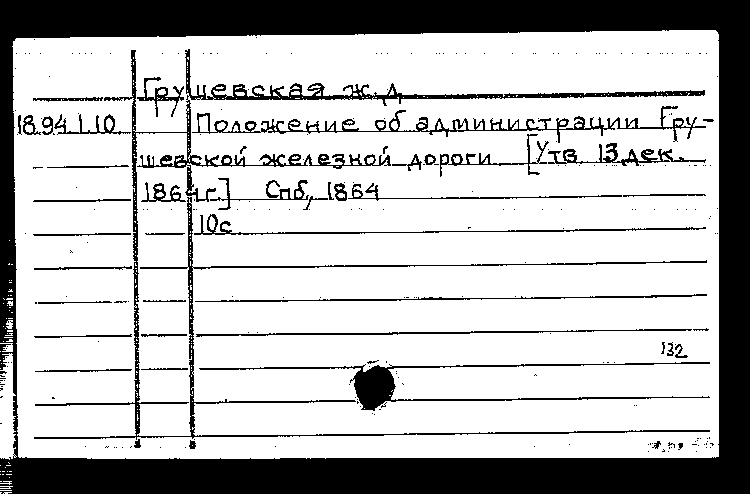 Грушевская ж.д.
18.94.1.10. Положение об администрации Гру-
шевской железной дороги [Утв 13 дек.
1864 г.] Спб., 1864
10с
132